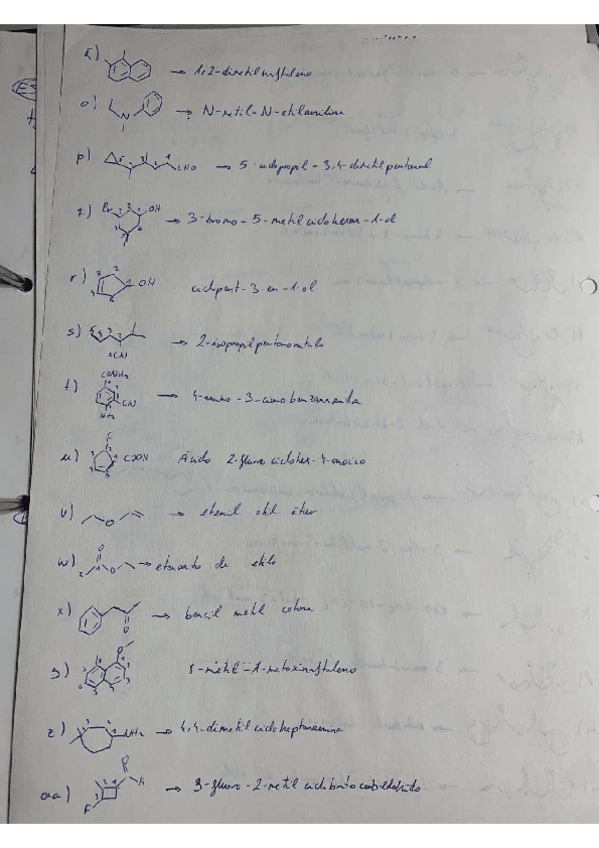 ñ) → 1,2-dimetilnaftaleno
o) N → N-metil-N-etilanilina
p) CHO → 5-ciclopropil-3,4-dimetilpentanal
q) Br OH → 3-bromo-5-metilciclohexan-1-ol
r) OH ciclopent-3-en-1-ol
s) CN → 2-isopropilpentanonitrilo
t) CONH2 CN NH2 → 4-amino-3-cianobenzamida
u) F COOH Ácido 2-fluoro ciclohex-4-enoico
v) O → etenil etil éter
w) O O → etanoato de etilo
x) O → bencil metil cetona
y) O 5-metil-1-metoxinaftaleno
z) NH2 → 4,4-dimetil cicloheptanamina
aa) F O H → 3-fluoro-2-metil ciclobutocarbaldehido